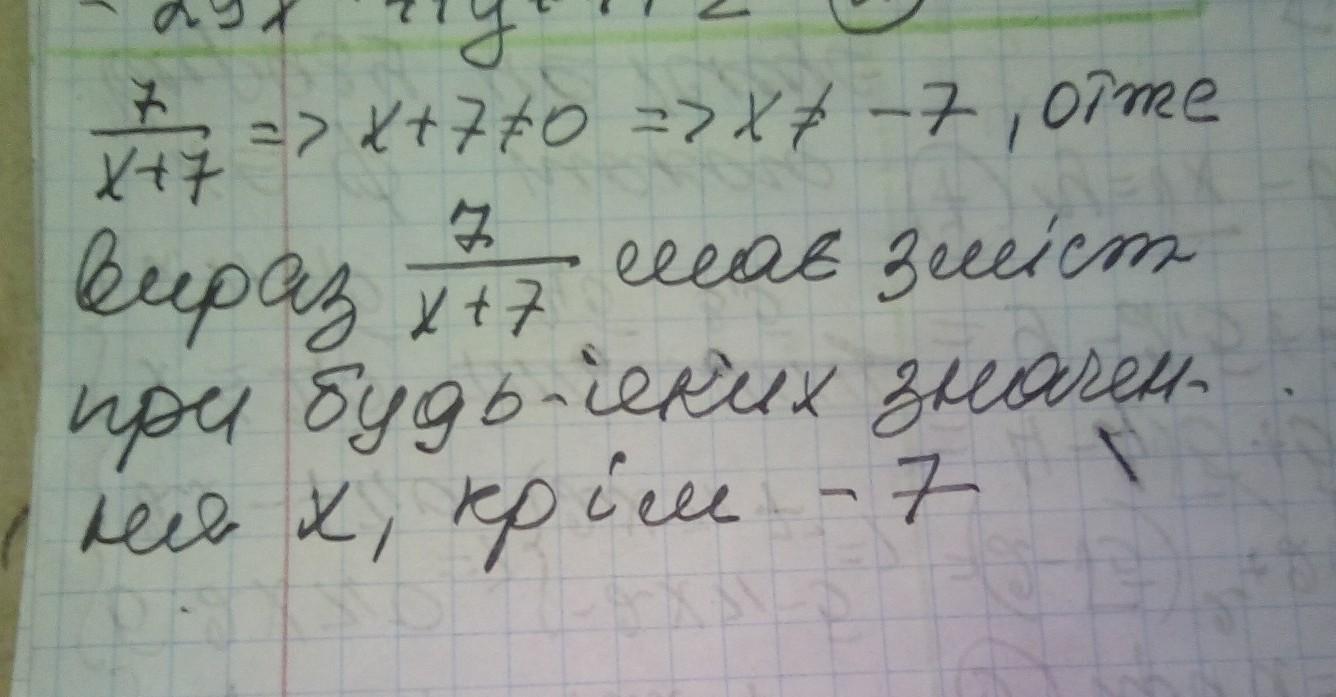 7/(x+7) => x+7≠0 => x≠ -7, отже
вираз 7/(x+7) має зміст
при будь-яких значен-
ня x, крім -7